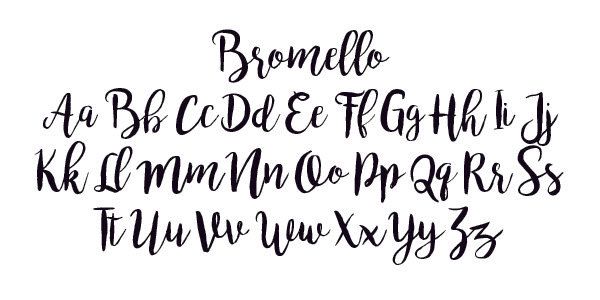 Bromello
Aa Bb Cc Dd Ee Ff Gg Hh Ii Jj
Kk Ll Mm Nn Oo Pp Qq Rr Ss
Tt Uu Vv Ww Xx Yy Zz